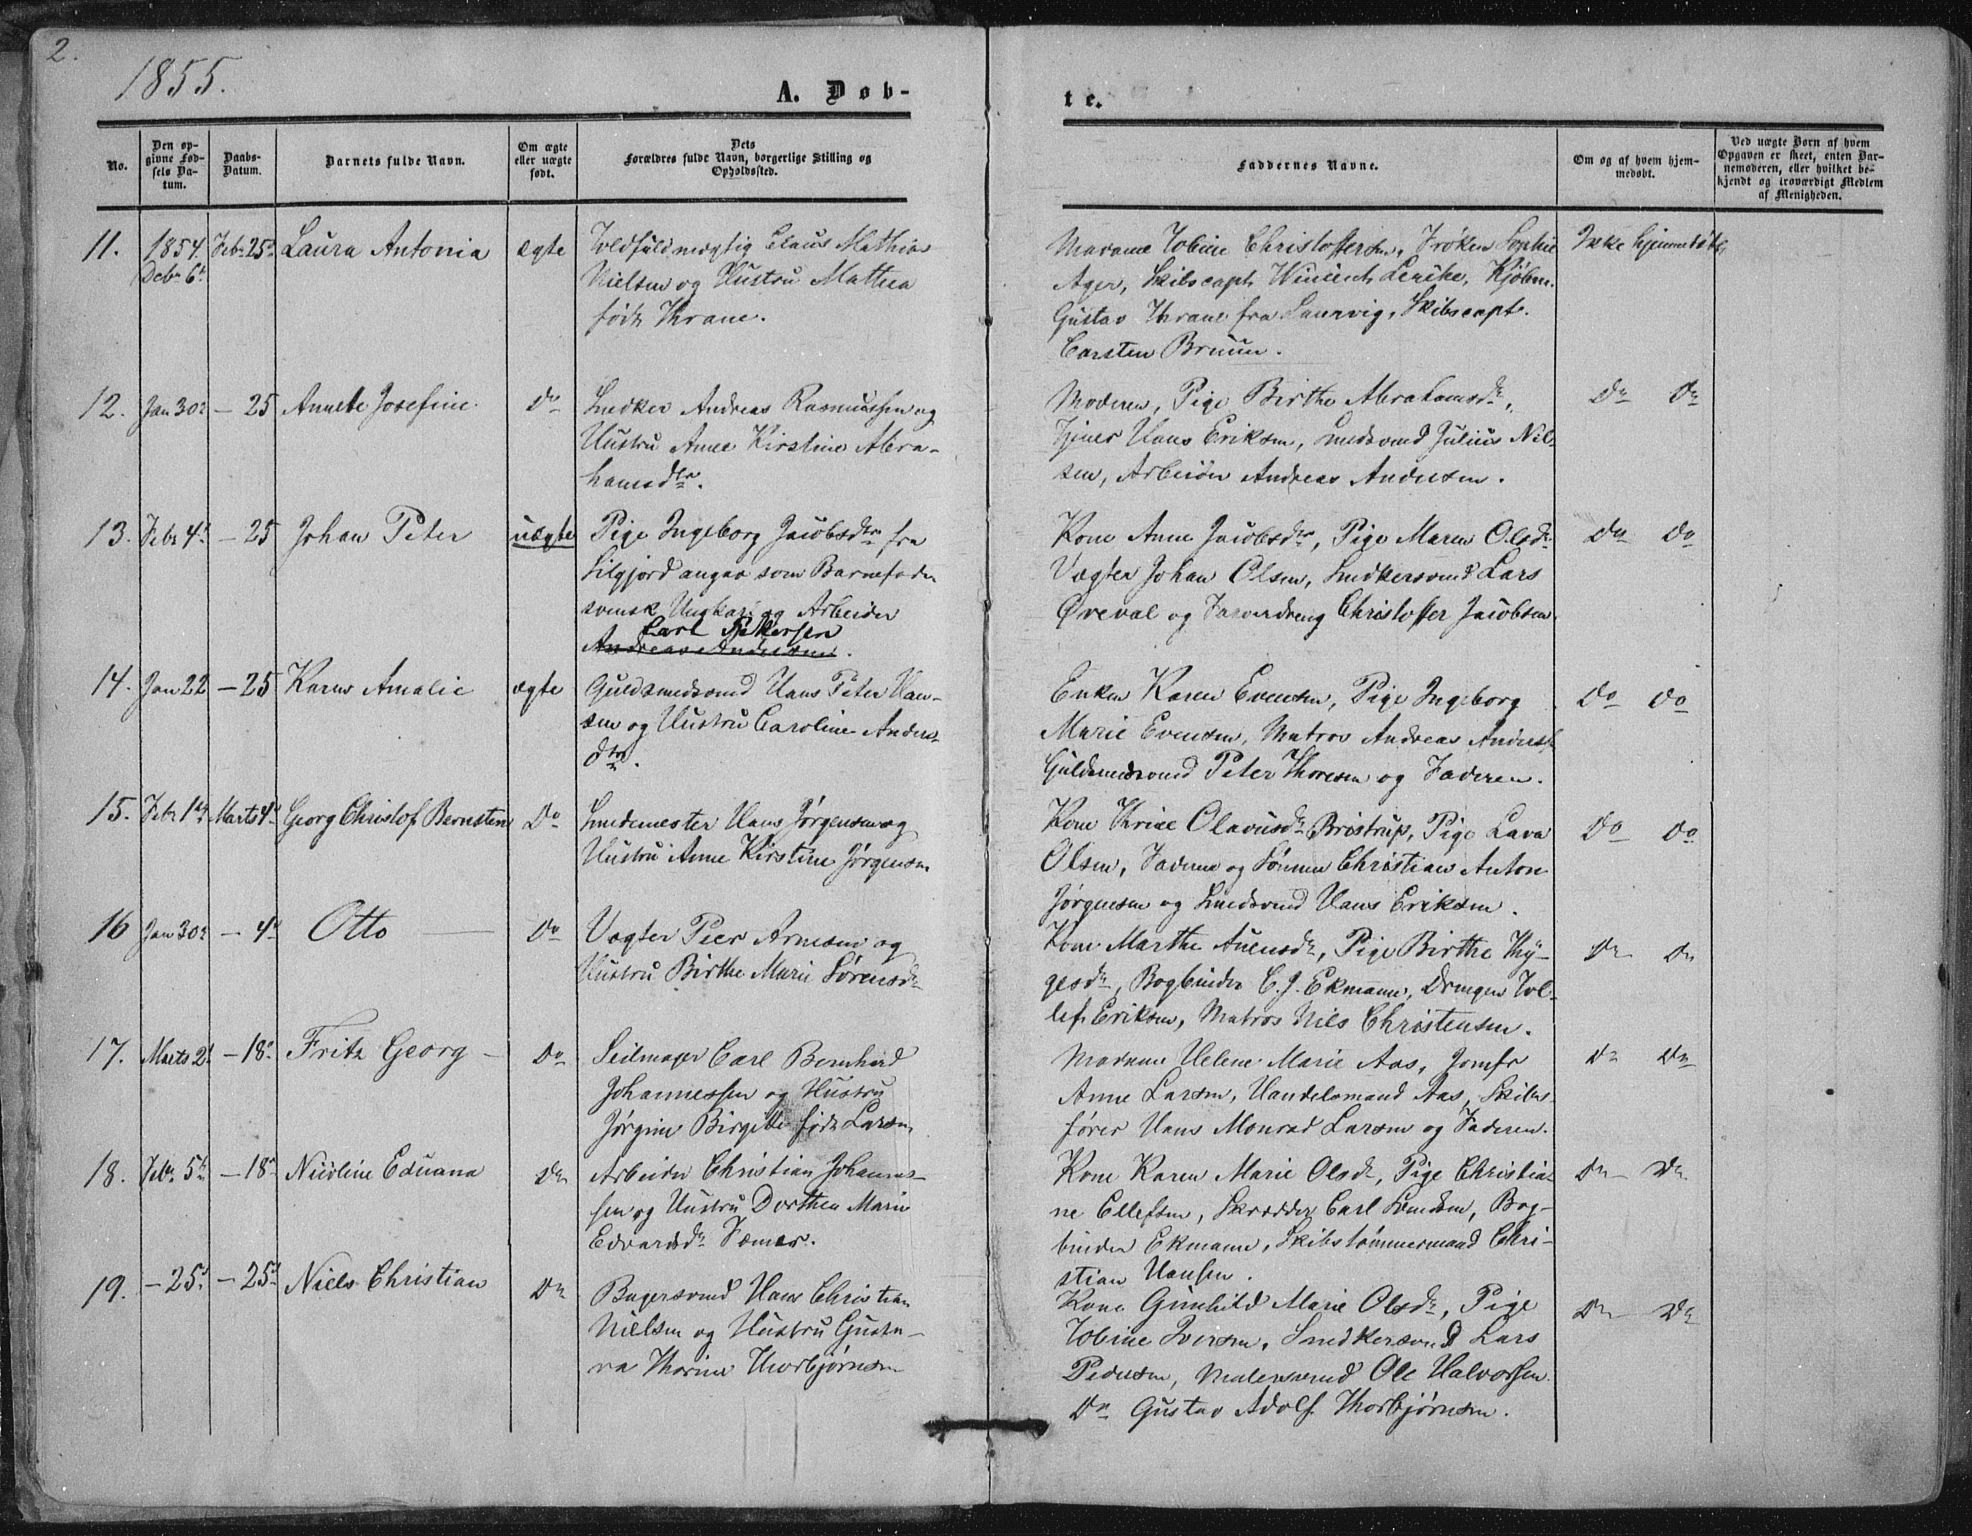 2.
1855.
A. Døb-
te.
No.
Den op-
givne Fød-
sels Da-
tum.
Daabs-
Datum.
Barnets fulde Navn.
Om ægte
eller uægte
født.
Dets
Forældres fulde Navn, borgerlige Stilling og
Opholdssted.
Faddernes Navne.
Om og af hvem hjem-
medøbt.
Ved uægte Børn af hvem
Opgaven er skeet, enten Bar-
nemoderen, eller hvilket be-
kjendt og troværdigt Medlem
af Menigheden.
11.
1854.
Decbr 6te
Febr 25de
Laura Antonia
ægte
Toldfuldmægtig Claus Mathias
Nielsen og Hustru Mathea
født Thrane.
Madame Tobine Christoffersen, Frøken Sophie
Ager, Skibscapt. Wincents Lerche, Kjøbm.
Gustav Thrane fra Laurvig, Skibscapt.
Carsten Bruun.
Ikke hjemmedøbt,
12.
Jan 30te
- 25
Annete Josefine.
Do
Snedker Andreas Rasmussen og
Hustru Anne Kirstine Abra-
hamsdtr.
Moderen, Pige Birthe Abrahamsdr,
Tjener Hans Eriksen, Smedsvend Julius Nil-
sen, Arbeider Andreas Andersen.
Do Do
13.
Febr 4de
- 25
Johan Peter
uægte
Pige Ingeborg Jacobsdtr fra
Silgjord angav som Barnefader
svensk Ungkarl og Arbeider
Carl Pettersen
Andreas Andersen.
Kone Anne Jacobsdtr, Pige Maren Olsdr
Vægter Johan Olsen, Snedkersvend Lars
Øreval og Farverdreng Christoffer Jacobsen.
Do Do
14.
Jan 22
- 25
Karen Amalie
ægte
Guldsmedsvend Hans Peter Han-
sen og Hustru Caroline Anders-
dtr.
Enken Karen Evensen, Pige Ingeborg
Marie Evensen, Matros Andreas Anders
Guldsmedsvend Peter Thoresen og Faderen.
Do Do
15.
Febr 1ste
Marts 4de
Georg Christof Bernsten
Do
Smedemester Hans Jørgensen og
Hustru Anne Kirstine Jørgensen
Kone Thrine Olavusdr Bristrup, Pige Lava
Olsen, Faderen og Sønnen Christian Anton
Jørgensen og Smedsvend Hans Eriksen.
Do Do
16
Jan 30te
- 4de
Otto
Do
Vægter Peer Arnesen og
Hustru Birthe Marie Sørensdr
Kone Marthe Auensdr, Pige Birthe Thy-
gesdr, Bogbinder C. J. Ekmann, Drengen Tol-
lef Eriksen, Matros Nils Christensen.
Do Do
17.
Marts 2
- 18de
Fritz Georg -
Do
Seilmager Carl Bernhard
Johannessen og Hustru
Jørgine Birgitte født Larsen
Madame Helene Marie Aas, Jomfr
Anne Larsen, Handelsmand Aas, Skibs-
fører Hans Monrad Larsen og Faderen.
Do Do
18.
Febr 5te
- 18de
Nicoline Eduana
Do
Arbeider Christian Johannes-
sen og Hustru Dorthea Marie
Edvardsdr
Kone Karen Marie Olsdr, Pige Christia-
ne Ellefsen, Skrædder Carl Svendsen, Bog-
binder Ekmann, Skibstømmermand Chri-
stian Hansen.
Do Do
19.
- 25de
- 25de
Niels Christian
Do
Bagersvend Hans Christian
Nielsen og Hustru Gusta-
va Thorine Thorbjørnsen
Kone Gunhild Marie Olsdr, Pige
Tobine Iversen, Snedkersvend Lars
Pedersen, Malersvend Ole Halvorsen
Do Gustav Adolf Thorbjørnsen.
Do Do